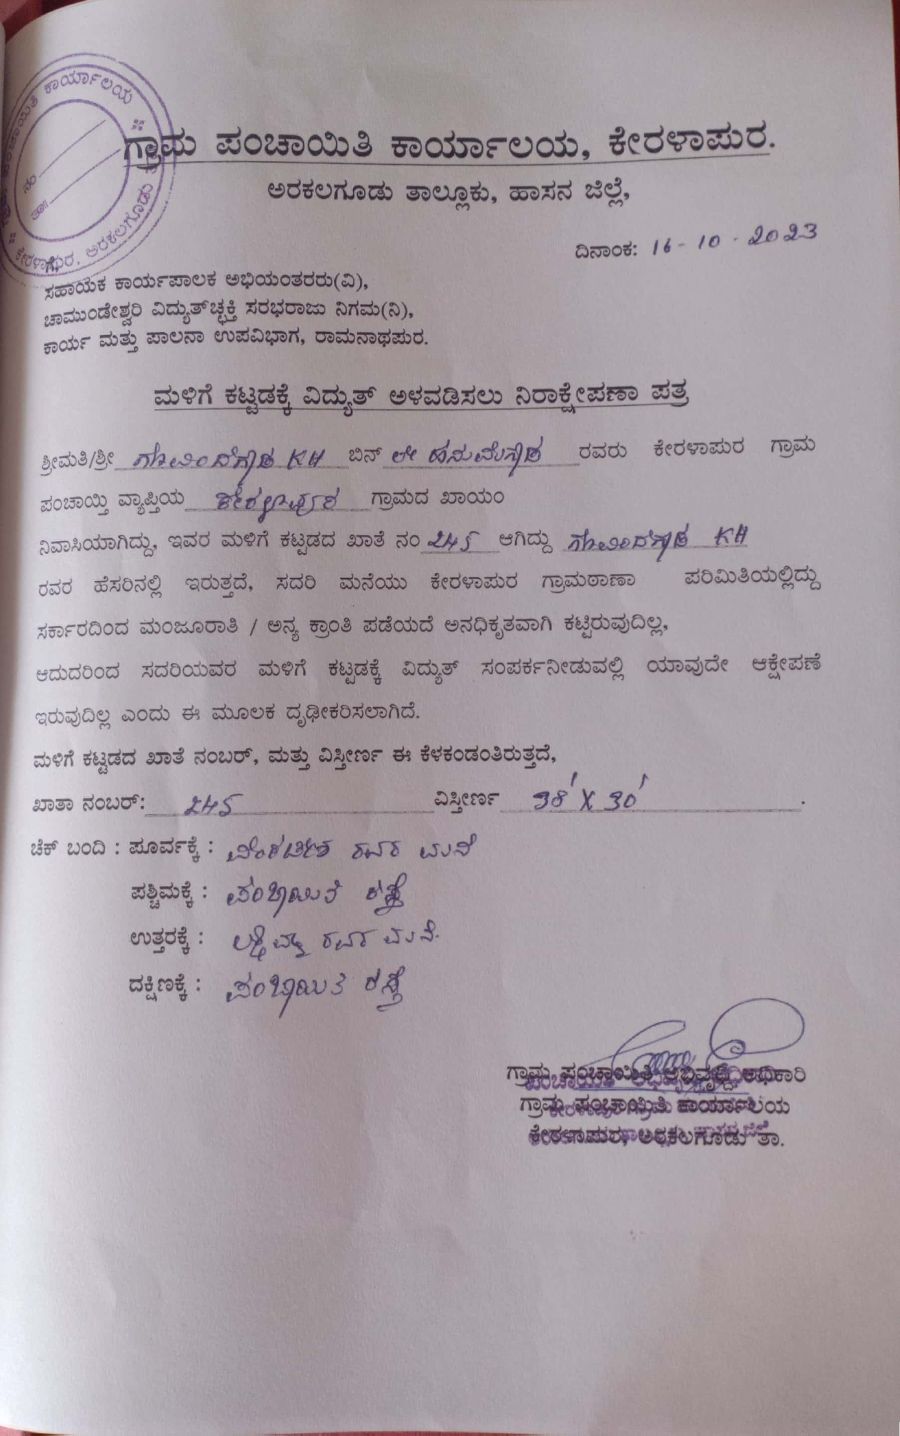 ಗ್ರಾಮ ಪಂಚಾಯಿತಿ ಕಾರ್ಯಾಲಯ, ಕೇರಳಾಪುರ.
ಅರಕಲಗೂಡು ತಾಲ್ಲೂಕು, ಹಾಸನ ಜಿಲ್ಲೆ,
ದಿನಾಂಕ: 16-10-2023
ಗೆ,
ಸಹಾಯಕ ಕಾರ್ಯಪಾಲಕ ಅಭಿಯಂತರರು(ವಿ),
ಚಾಮುಂಡೇಶ್ವರಿ ವಿದ್ಯುತ್‌ಚ್ಛಕ್ತಿ ಸರಭರಾಜು ನಿಗಮ(ನಿ),
ಕಾರ್ಯ ಮತ್ತು ಪಾಲನಾ ಉಪವಿಭಾಗ, ರಾಮನಾಥಪುರ.
ಮಳಿಗೆ ಕಟ್ಟಡಕ್ಕೆ ವಿದ್ಯುತ್ ಅಳವಡಿಸಲು ನಿರಾಕ್ಷೇಪಣಾ ಪತ್ರ
ಶ್ರೀಮತಿ/ಶ್ರೀ ಗೋವಿಂದೇಗೌಡ KH ಬಿನ್ ಲೇ ಹನುಮೇಗೌಡ ರವರು ಕೇರಳಾಪುರ ಗ್ರಾಮ
ಪಂಚಾಯ್ತಿ ವ್ಯಾಪ್ತಿಯ ಕೇರಳಾಪುರ ಗ್ರಾಮದ ಖಾಯಂ
ನಿವಾಸಿಯಾಗಿದ್ದು, ಇವರ ಮಳಿಗೆ ಕಟ್ಟಡದ ಖಾತೆ ನಂ 245 ಆಗಿದ್ದು ಗೋವಿಂದೇಗೌಡ KH
ರವರ ಹೆಸರಿನಲ್ಲಿ ಇರುತ್ತದೆ, ಸದರಿ ಮನೆಯು ಕೇರಳಾಪುರ ಗ್ರಾಮಠಾಣಾ ಪರಿಮಿತಿಯಲ್ಲಿದ್ದು
ಸರ್ಕಾರದಿಂದ ಮಂಜೂರಾತಿ / ಅನ್ಯ ಕ್ರಾಂತಿ ಪಡೆಯದೆ ಅನಧಿಕೃತವಾಗಿ ಕಟ್ಟಿರುವುದಿಲ್ಲ,
ಆದುದರಿಂದ ಸದರಿಯವರ ಮಳಿಗೆ ಕಟ್ಟಡಕ್ಕೆ ವಿದ್ಯುತ್ ಸಂಪರ್ಕನೀಡುವಲ್ಲಿ ಯಾವುದೇ ಆಕ್ಷೇಪಣೆ
ಇರುವುದಿಲ್ಲ ಎಂದು ಈ ಮೂಲಕ ದೃಢೀಕರಿಸಲಾಗಿದೆ.
ಮಳಿಗೆ ಕಟ್ಟಡದ ಖಾತೆ ನಂಬರ್, ಮತ್ತು ವಿಸ್ತೀರ್ಣ ಈ ಕೆಳಕಂಡಂತಿರುತ್ತದೆ,
ಖಾತಾ ನಂಬರ್: 245 ವಿಸ್ತೀರ್ಣ 38' X 30' .
ಚೆಕ್ ಬಂದಿ : ಪೂರ್ವಕ್ಕೆ : ವೆಂಕಟೇಶ ರವರ ಮನೆ
ಪಶ್ಚಿಮಕ್ಕೆ : ಪಂಚಾಯಿತಿ ರಸ್ತೆ
ಉತ್ತರಕ್ಕೆ : ರವರ ಮನೆ
ದಕ್ಷಿಣಕ್ಕೆ : ಪಂಚಾಯಿತಿ ರಸ್ತೆ
ಗ್ರಾಮ ಪಂಚಾಯಿತಿ ಅಭಿವೃದ್ಧಿ ಅಧಿಕಾರಿ
ಗ್ರಾಮ ಪಂಚಾಯಿತಿ ಕಾರ್ಯಾಲಯ
ಕೇರಳಾಪುರ, ಅರಕಲಗೂಡು ತಾ.